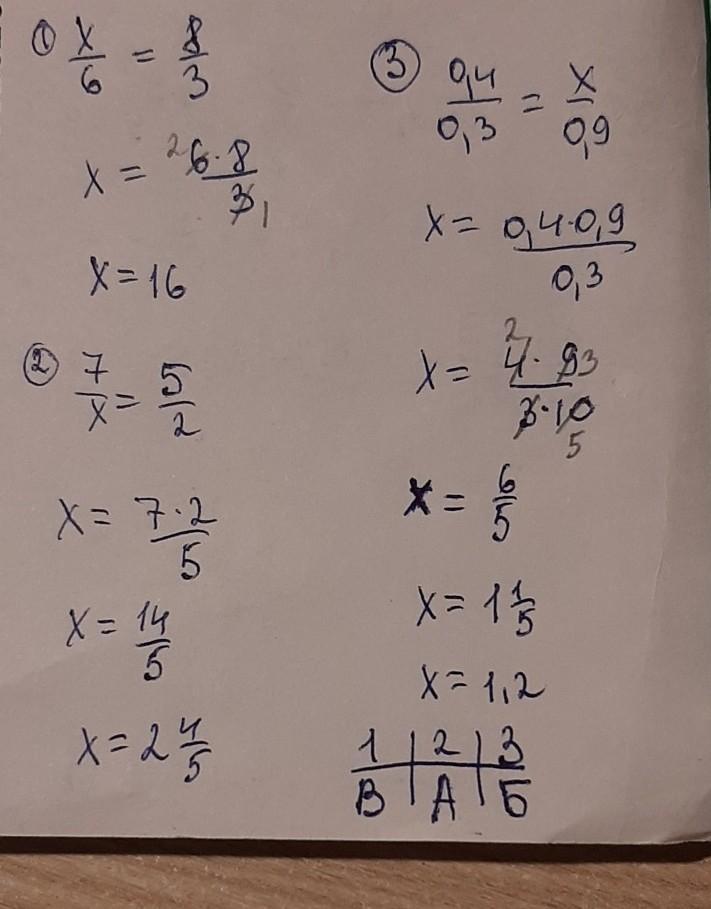 ① x/6 = 8/3
x = ²6·8/3 1
x = 16
② 7/x = 5/2
x = 7·2/5
x = 14/5
x = 2 4/5
③ 0,4/0,3 = x/0,9
x = 0,4·0,9/0,3
x = 2 4·9 3/3·10 5
x = 6/5
x = 1 1/5
x = 1,2
1 | 2 | 3
В | А | Б